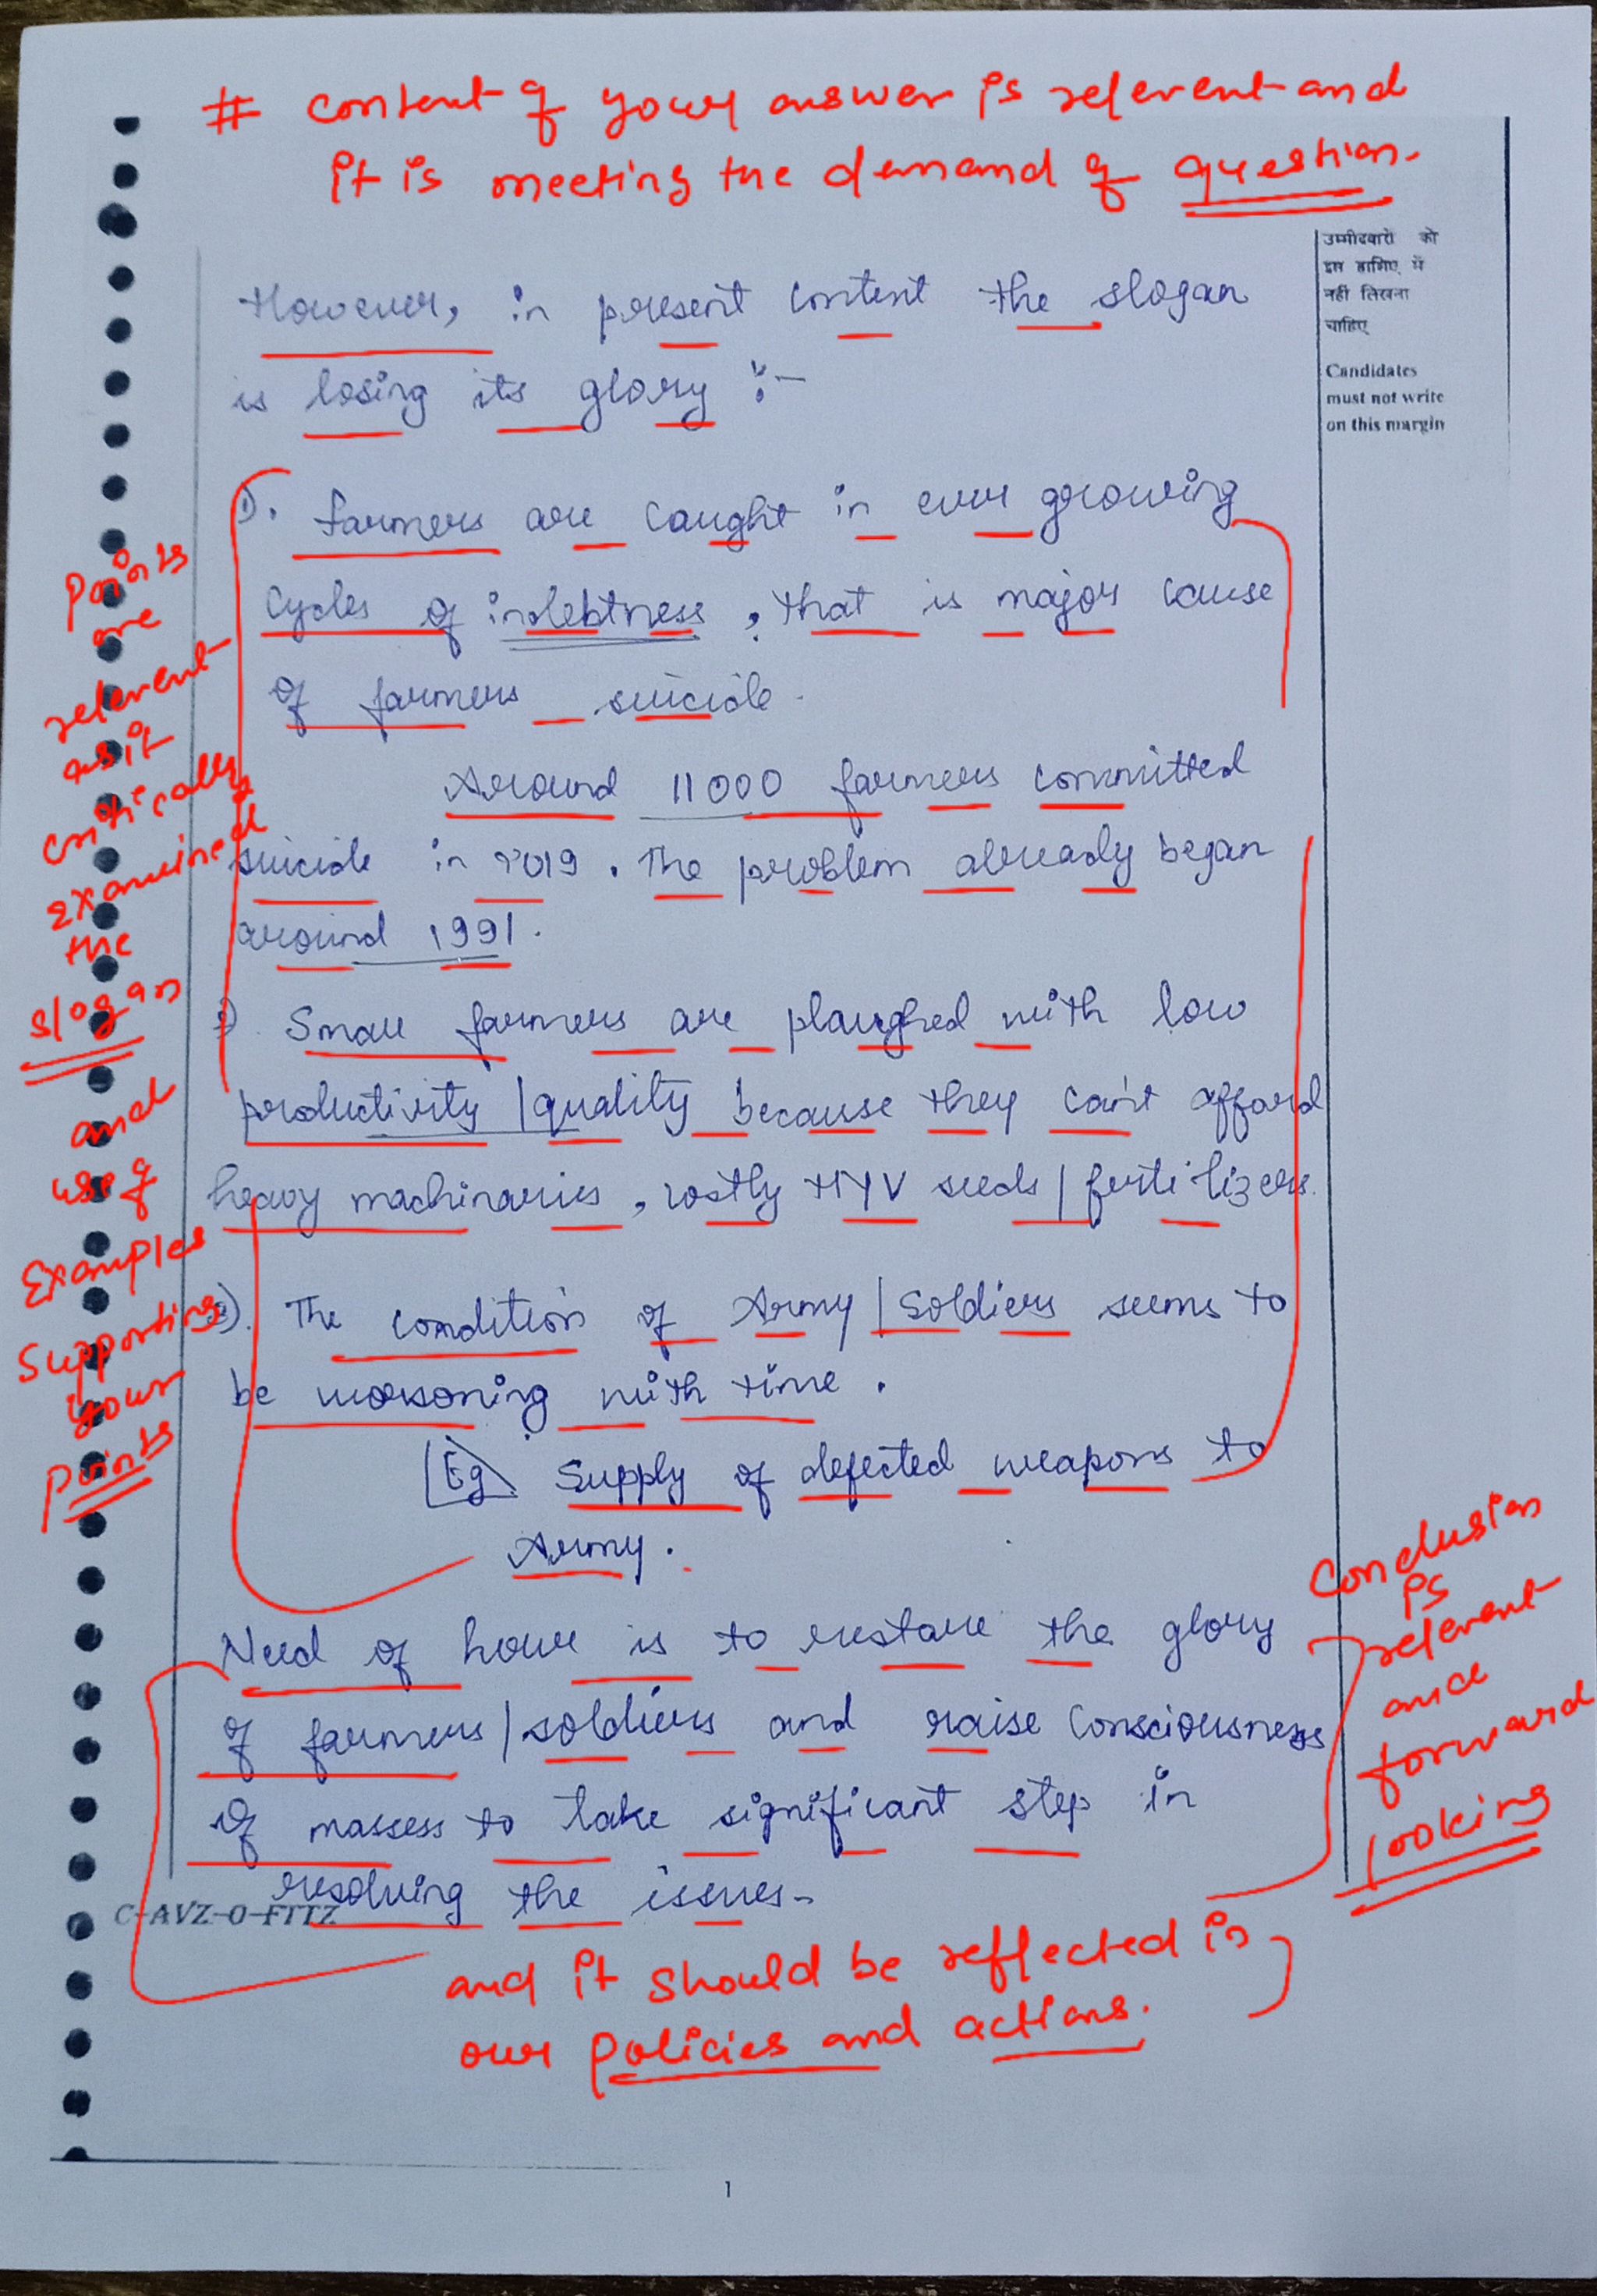 # content of your answer is relevent and
it is meeting the demand of question.
उम्मीदवारों को
इस हाशिए में
नहीं लिखना
चाहिए
Candidates
must not write
on this margin
However, in present content the slogan
is losing its glory :-
1). Farmers are caught in ever growing
cycles of indebtness, that is major cause
of farmers suicide.
Around 11000 farmers committed
suicide in 2019. The problem already began
around 1991.
2) Small farmers are plaughed with low
productivity/quality because they can't afford
heavy machinaries, costly HYV seeds/fertilizers.
3). The condition of Army/Soldiers seems to
be worsoning with time.
Eg Supply of defected weapons to
Army.
Need of hour is to restore the glory
of farmers/soldiers and raise consciousness
of massess to take significant step in
resolving the issues.
Points
are
relevent
as it
critically
examined
the
slogan
and
use of
Examples
Supporting
your
points
Conclusion
is
relevent
and
forward
looking
C-AVZ-O-FITZ
and it should be reflected in
our policies and actions.
1